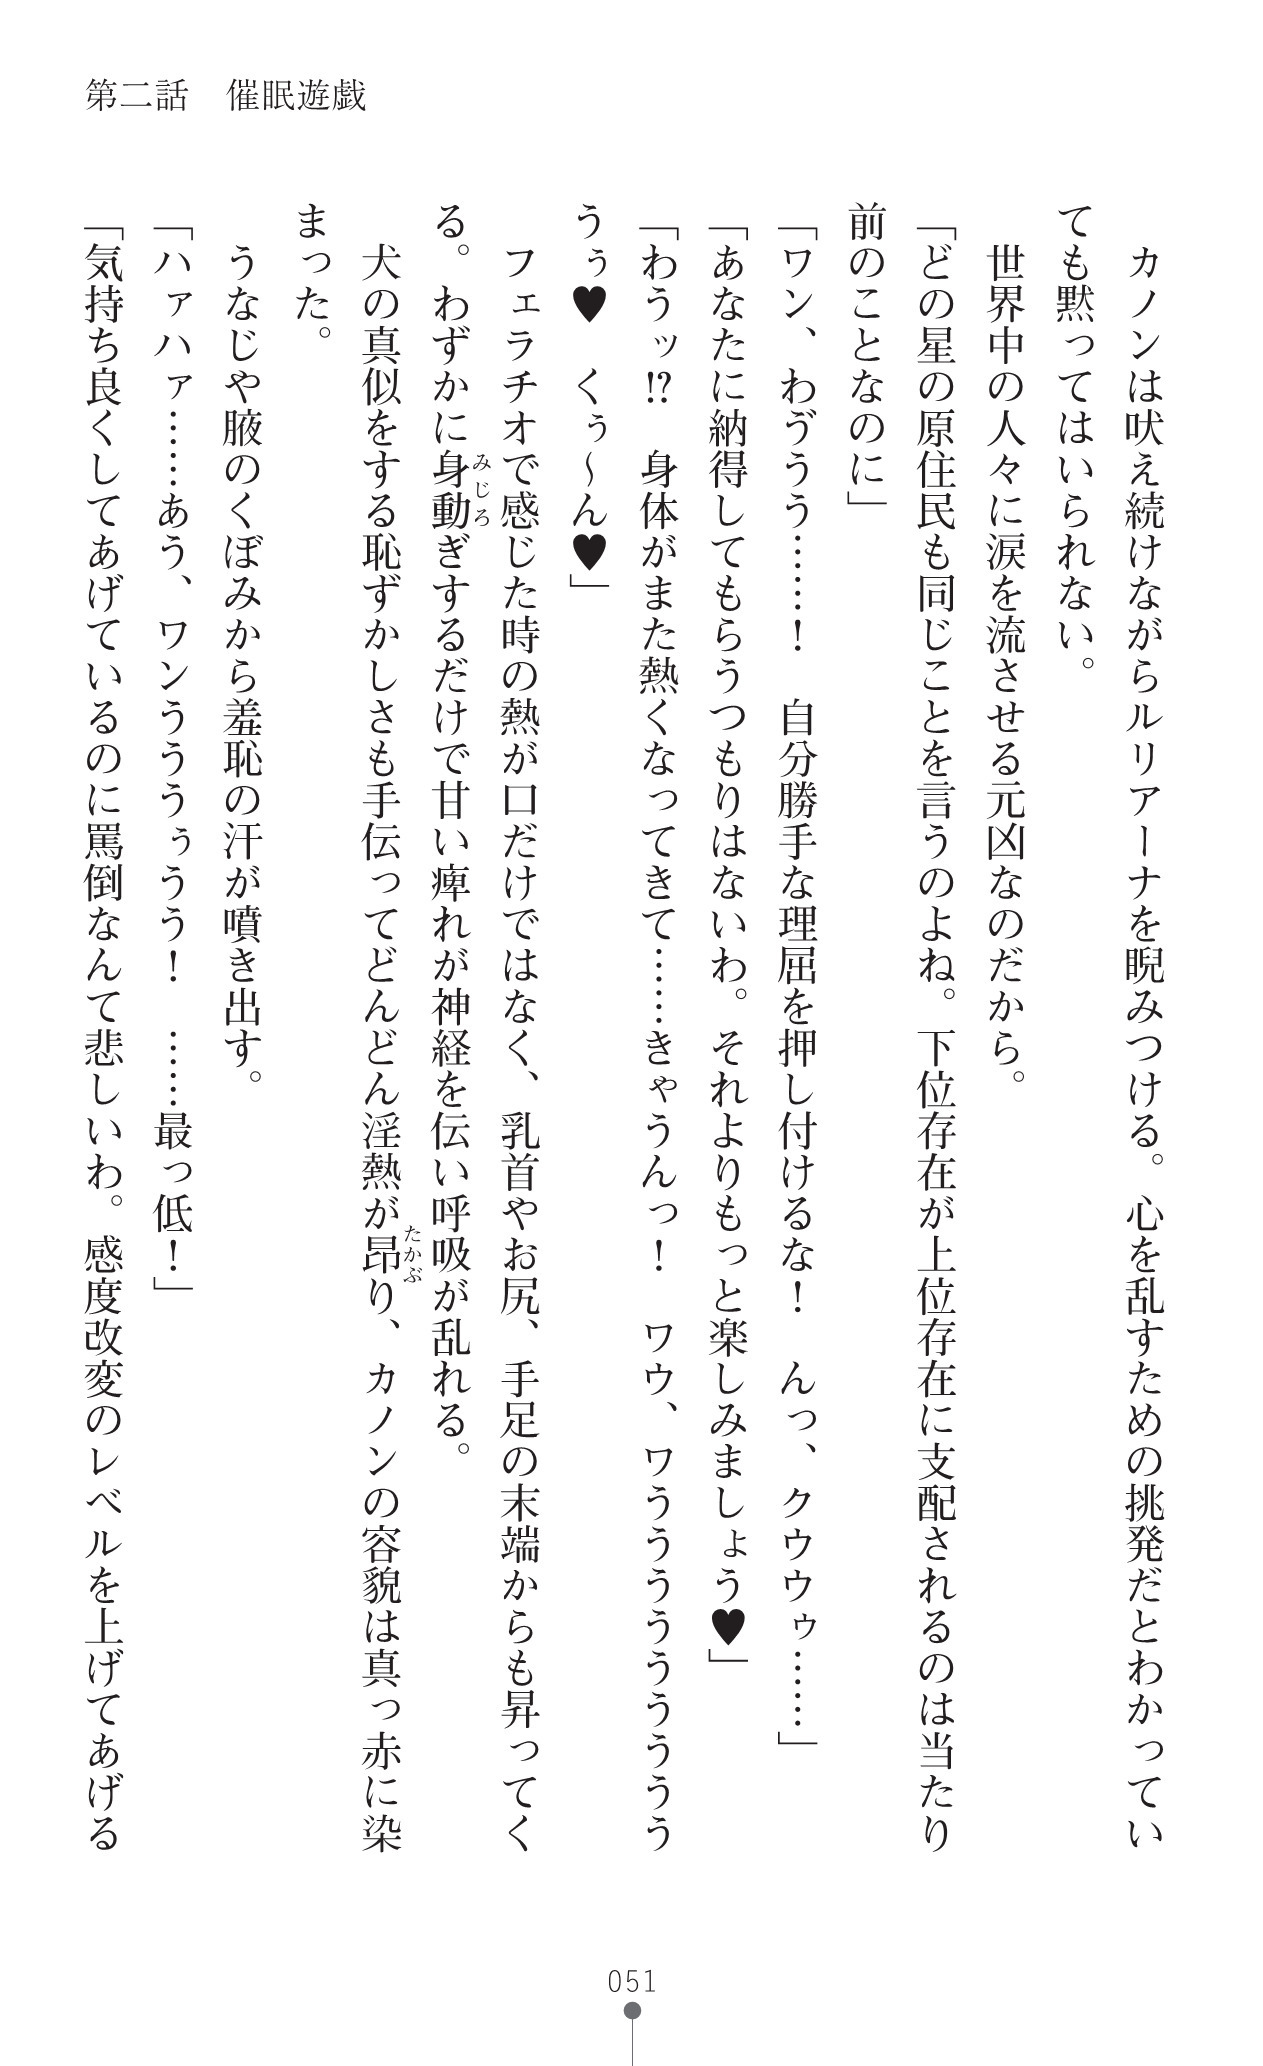 第二話　催眠遊戯
　カノンは吠え続けながらルリアーナを睨みつける。心を乱すための挑発だとわかってい
ても黙ってはいられない。
　世界中の人々に涙を流させる元凶なのだから。
「どの星の原住民も同じことを言うのよね。下位存在が上位存在に支配されるのは当たり
前のことなのに」
「ワン、わゔうう……！　自分勝手な理屈を押し付けるな！　んっ、クウウゥ……」
「あなたに納得してもらうつもりはないわ。それよりもっと楽しみましょう♥」
「わうッ⁉　身体がまた熱くなってきて……きゃうんっ！　ワウ、ワうううううううう
うぅ♥　くぅ～ん♥」
　フェラチオで感じた時の熱が口だけではなく、乳首やお尻、手足の末端からも昇ってく
る。わずかに身動みじろぎするだけで甘い痺れが神経を伝い呼吸が乱れる。
　犬の真似をする恥ずかしさも手伝ってどんどん淫熱が昂たかぶり、カノンの容貌は真っ赤に染
まった。
　うなじや腋のくぼみから羞恥の汗が噴き出す。
「ハァハァ……あう、ワンうううぅうう！　……最っ低！」
「気持ち良くしてあげているのに罵倒なんて悲しいわ。感度改変のレベルを上げてあげる
051